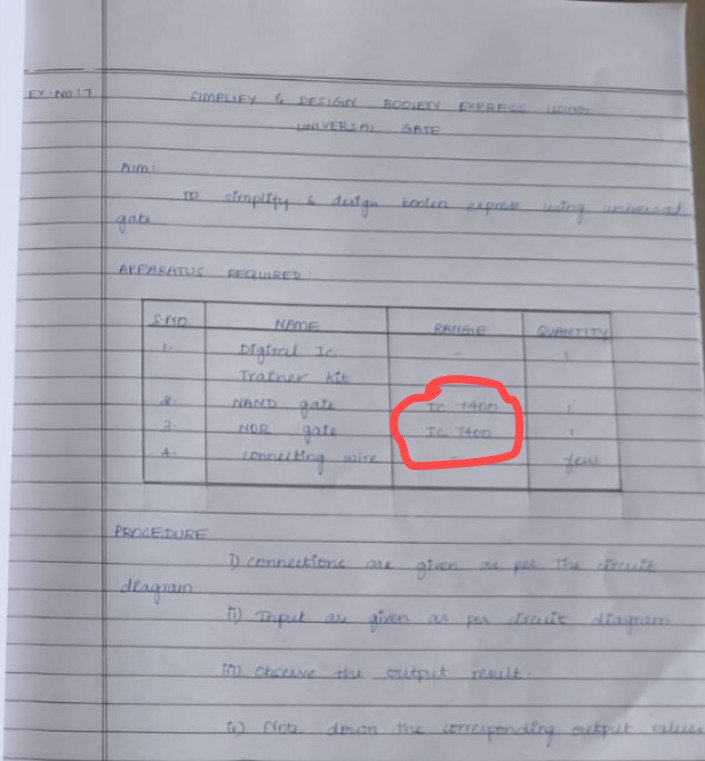 EX.NO:7
SIMPLIFY & DESIGN BOOLETY EXPRESS USING
UNIVERSAL GATE
Aim:
To simplify & design boolen express using universal
gate
APPARATUS REQUIRED:
S.NO NAME RANGE QUANTITY
1. Digital Ic - 1
Trainer kit
2. NAND gate IC 7400 1
3. NOR gate IC 7400 1
4. connecting wire - few
PROCEDURE
i) connections are given as per the circuit
diagram
ii) Input are given as per circuit diagram
iii) observe the output result.
iv) Note down the corresponding output values